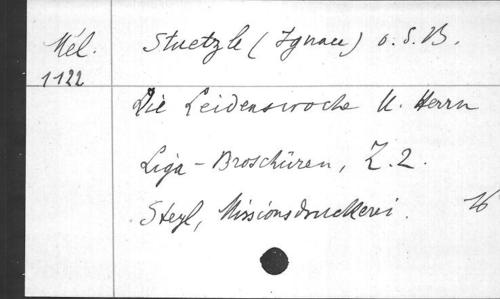 Mél.
1122
Stuetzle (Ignau) o. S. B.
Die Leidenswoche U. Herrn
Liga-Broschüren, Z. 2.
Steyl, Missionsdruckerei. 16